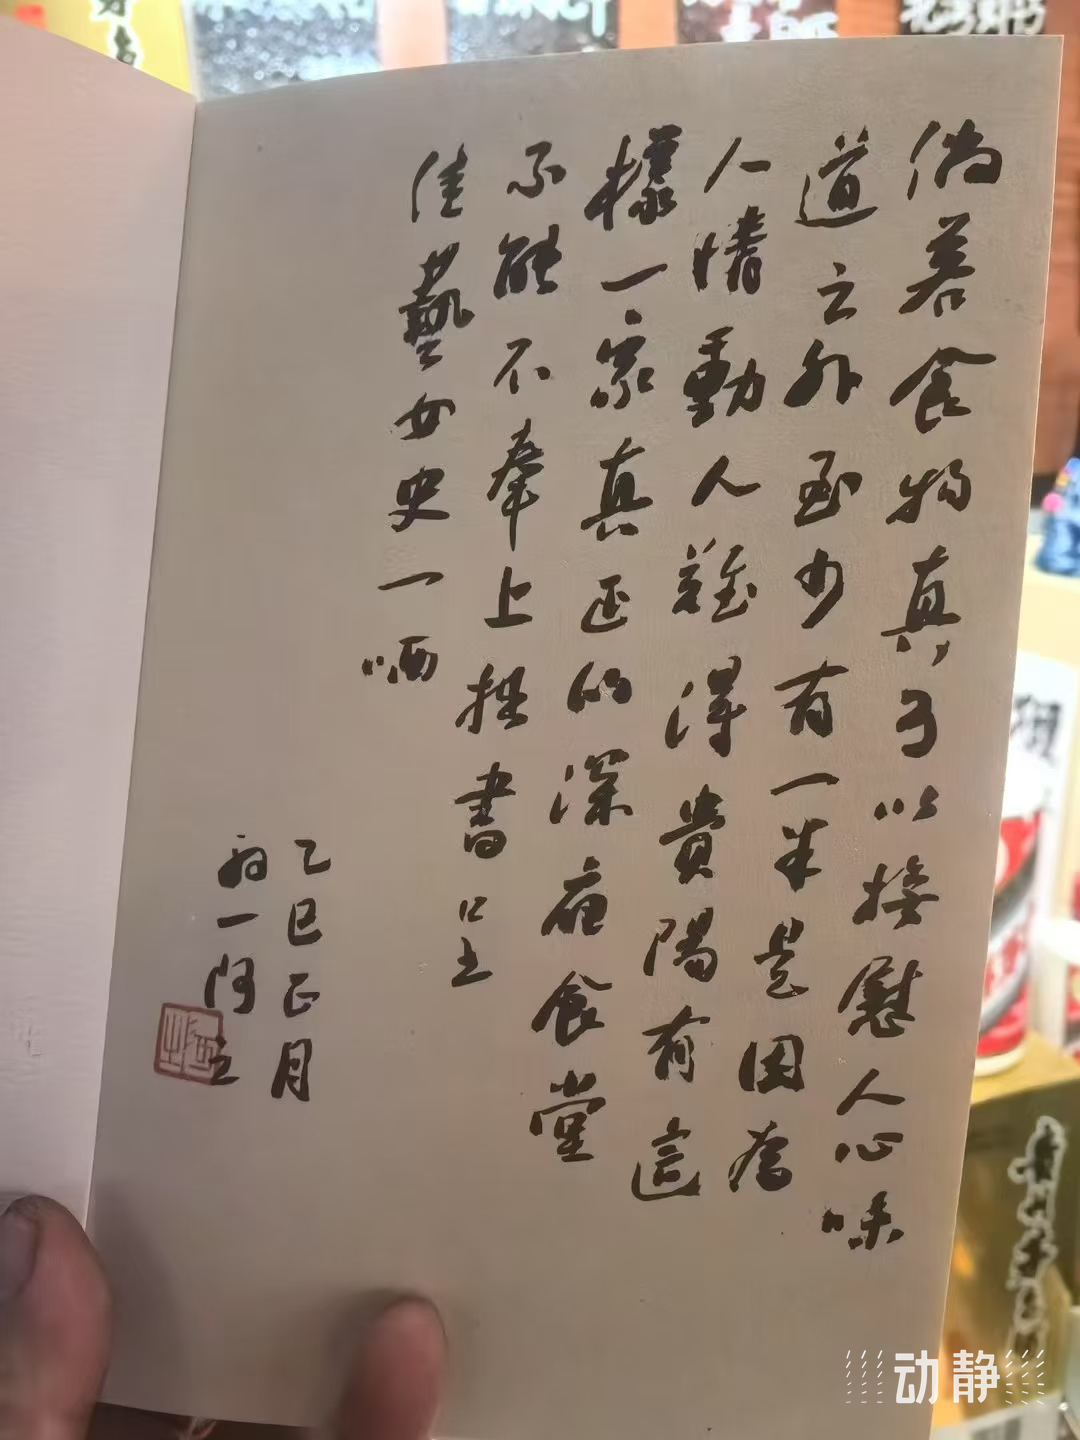 倘若食物真可以接慰人心味
道之外至少有一半是因為
人情動人難得貴陽有這
樣一家真正的深夜食堂
不能不奉上拙書呈
佳藝女史一哂
乙巳正月
动静